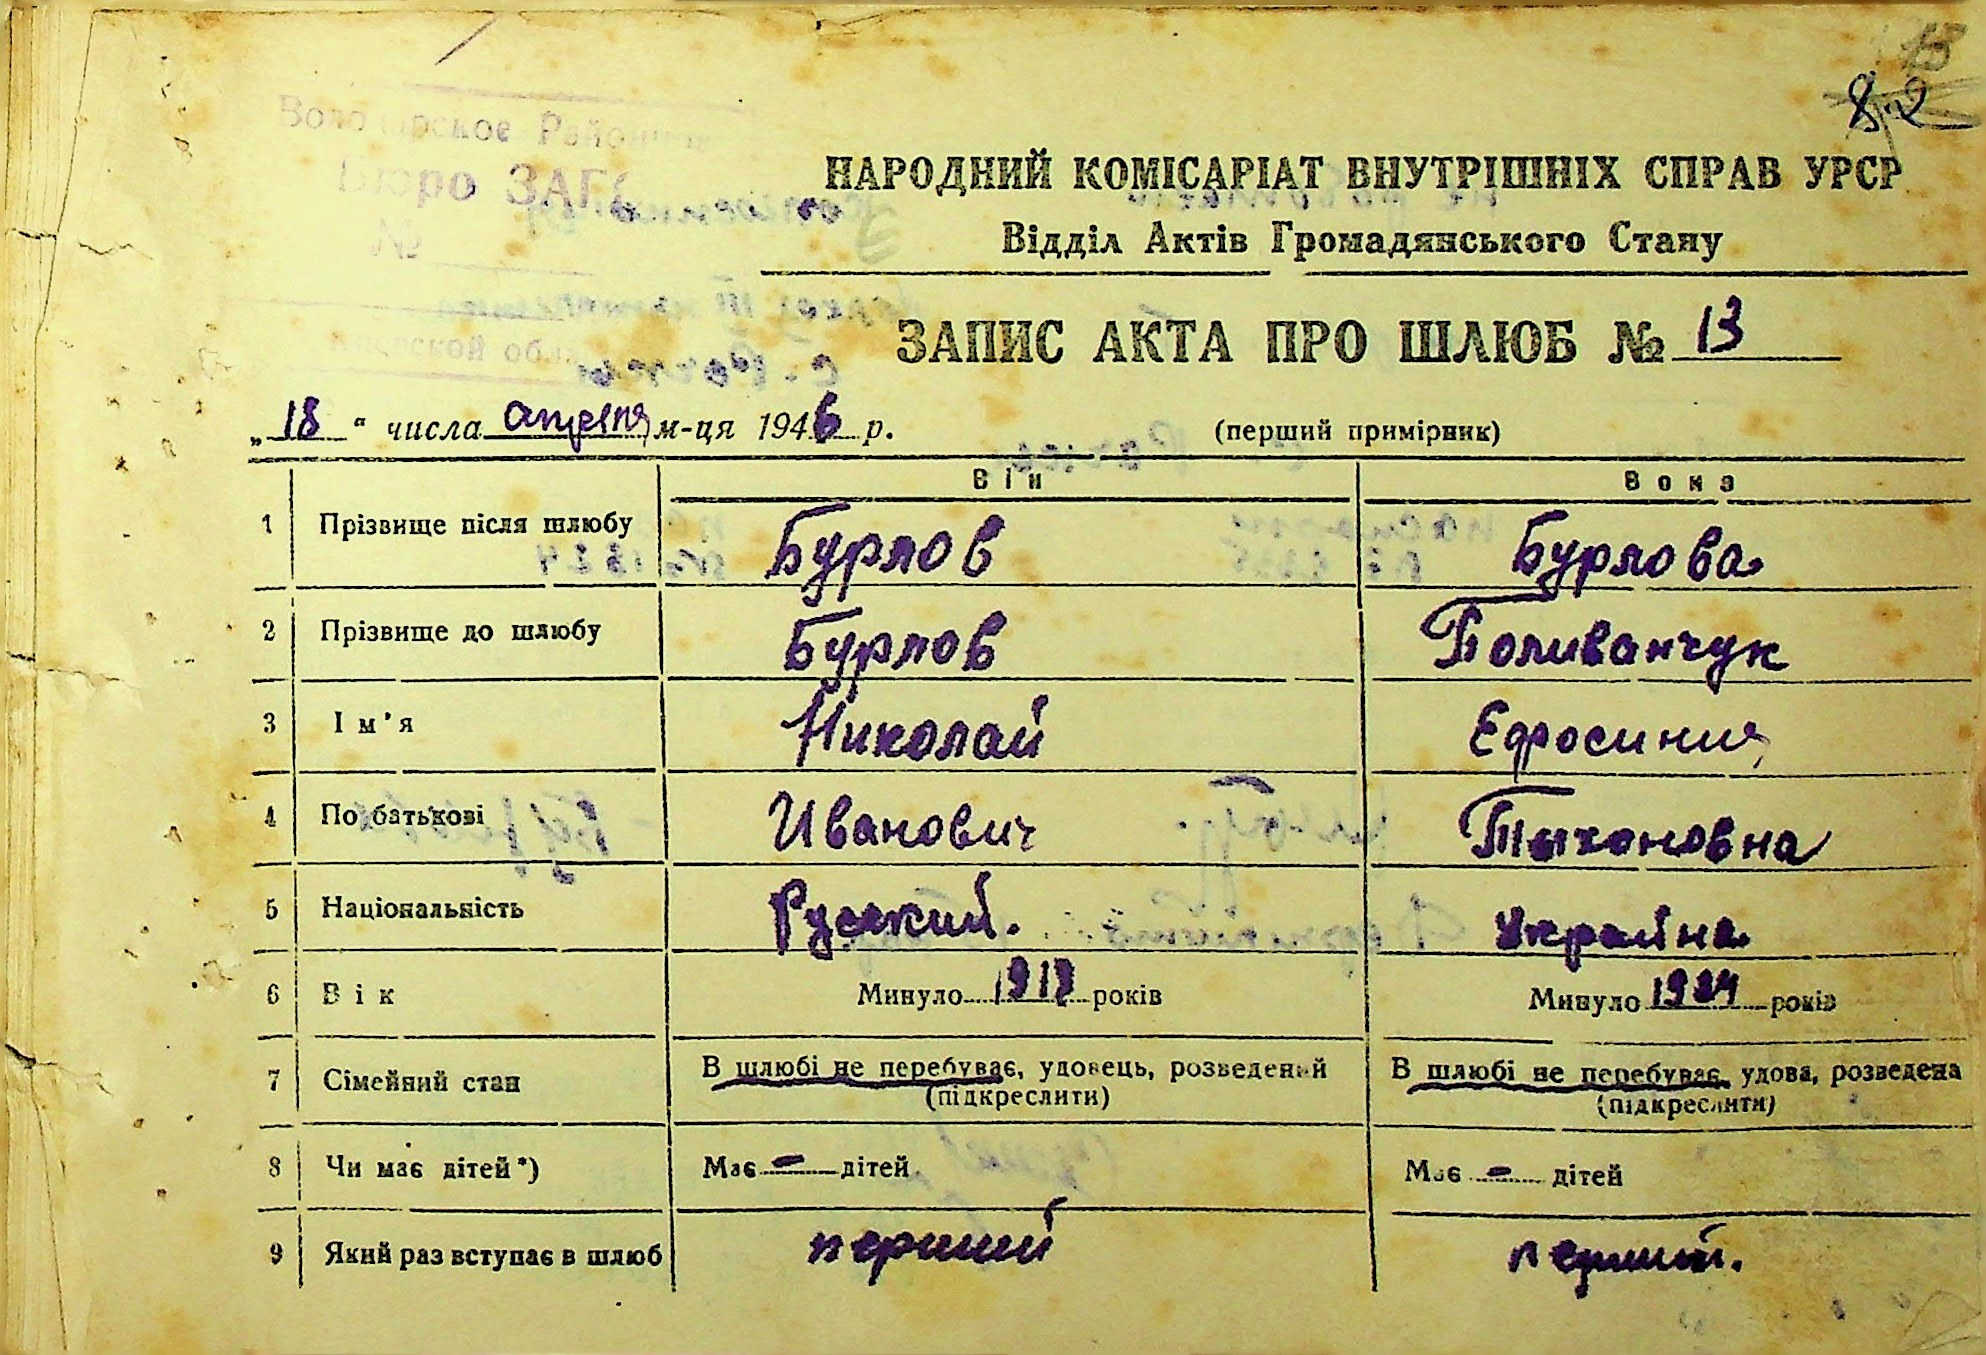 15
82
Бюро ЗАГС
№
НАРОДНИЙ КОМІСАРІАТ ВНУТРІШНІХ СПРАВ УРСР
Відділ Актів Громадянського Стану
ЗАПИС АКТА ПРО ШЛЮБ № 13
„18“ числа апреля м-ця 1946 р. (перший примірник)
Він Вона
1 Прізвище після шлюбу Бурлов Бурлова
2 Прізвище до шлюбу Бурлов Поливанчук
3 Ім'я Николай Ефросиния
4 По батькові Иванович Тихоновна
5 Національність Руский. Украйна
6 Вік Минуло 1917 років Минуло 1924 років
7 Сімейний стан В шлюбі не перебуває, удовець, розведений В шлюбі не перебуває, удова, розведена
(підкреслити) (підкреслити)
8 Чи має дітей*) Має – дітей. Має – дітей
9 Який раз вступає в шлюб перший перший.